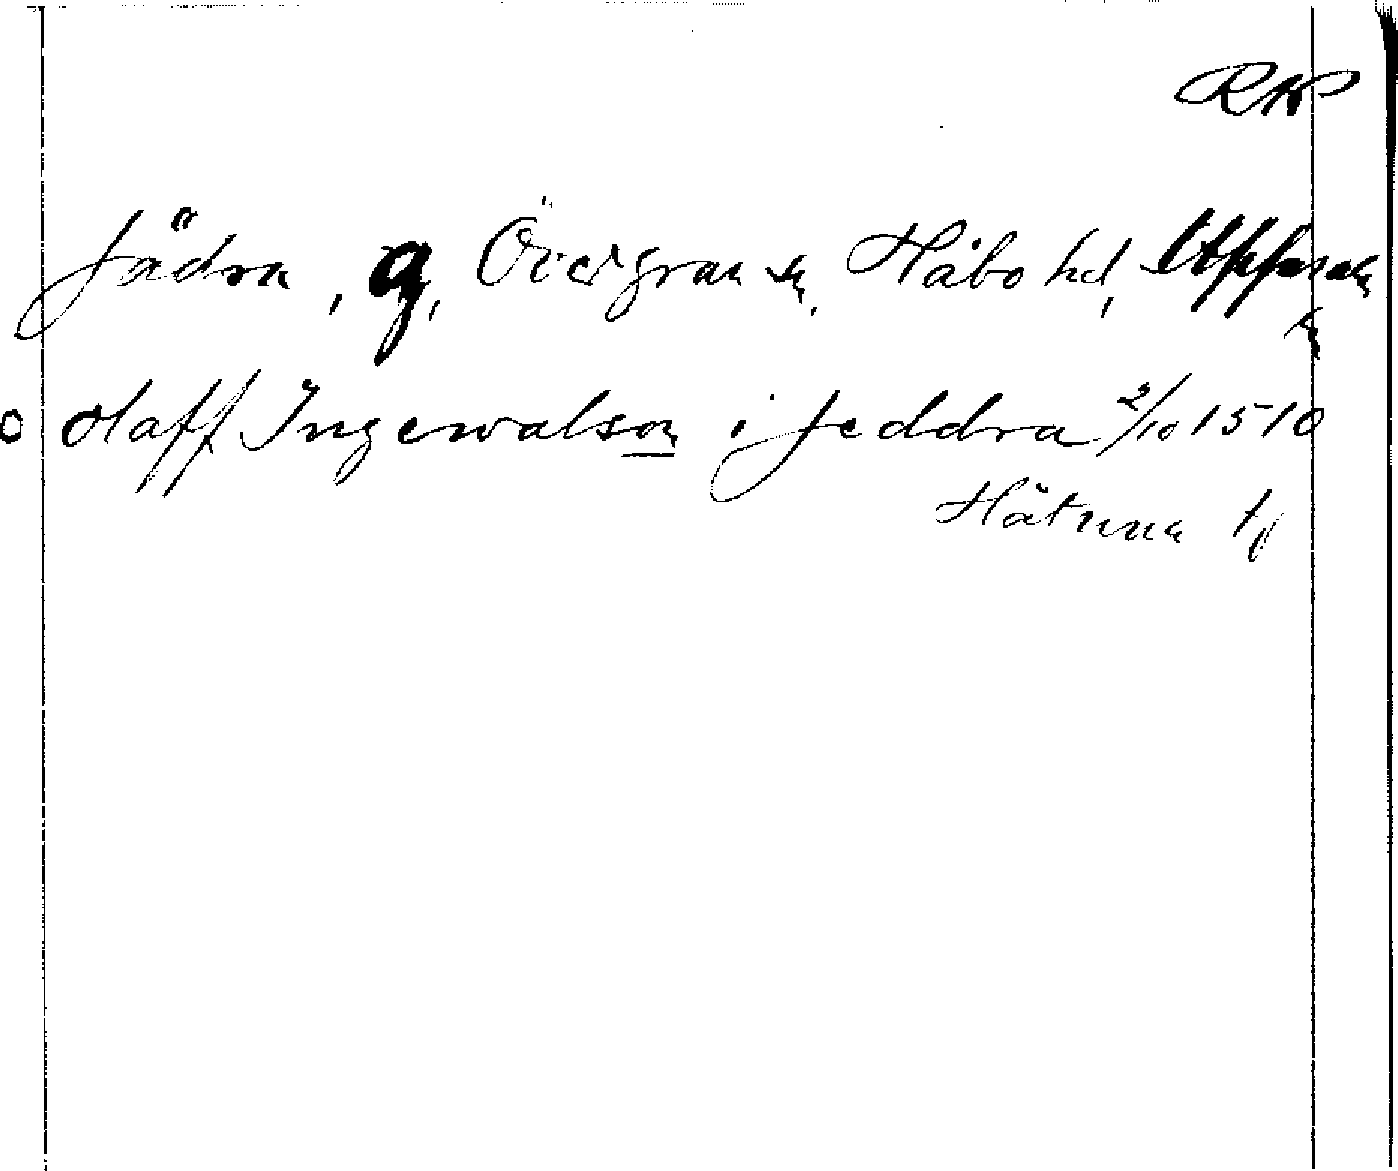 RK
Jädra, g, Övergrans sn, Håbo hd, Uppsala
ln
Olaff Ingewalson i Jeddra 2/10 1510
Håtuna